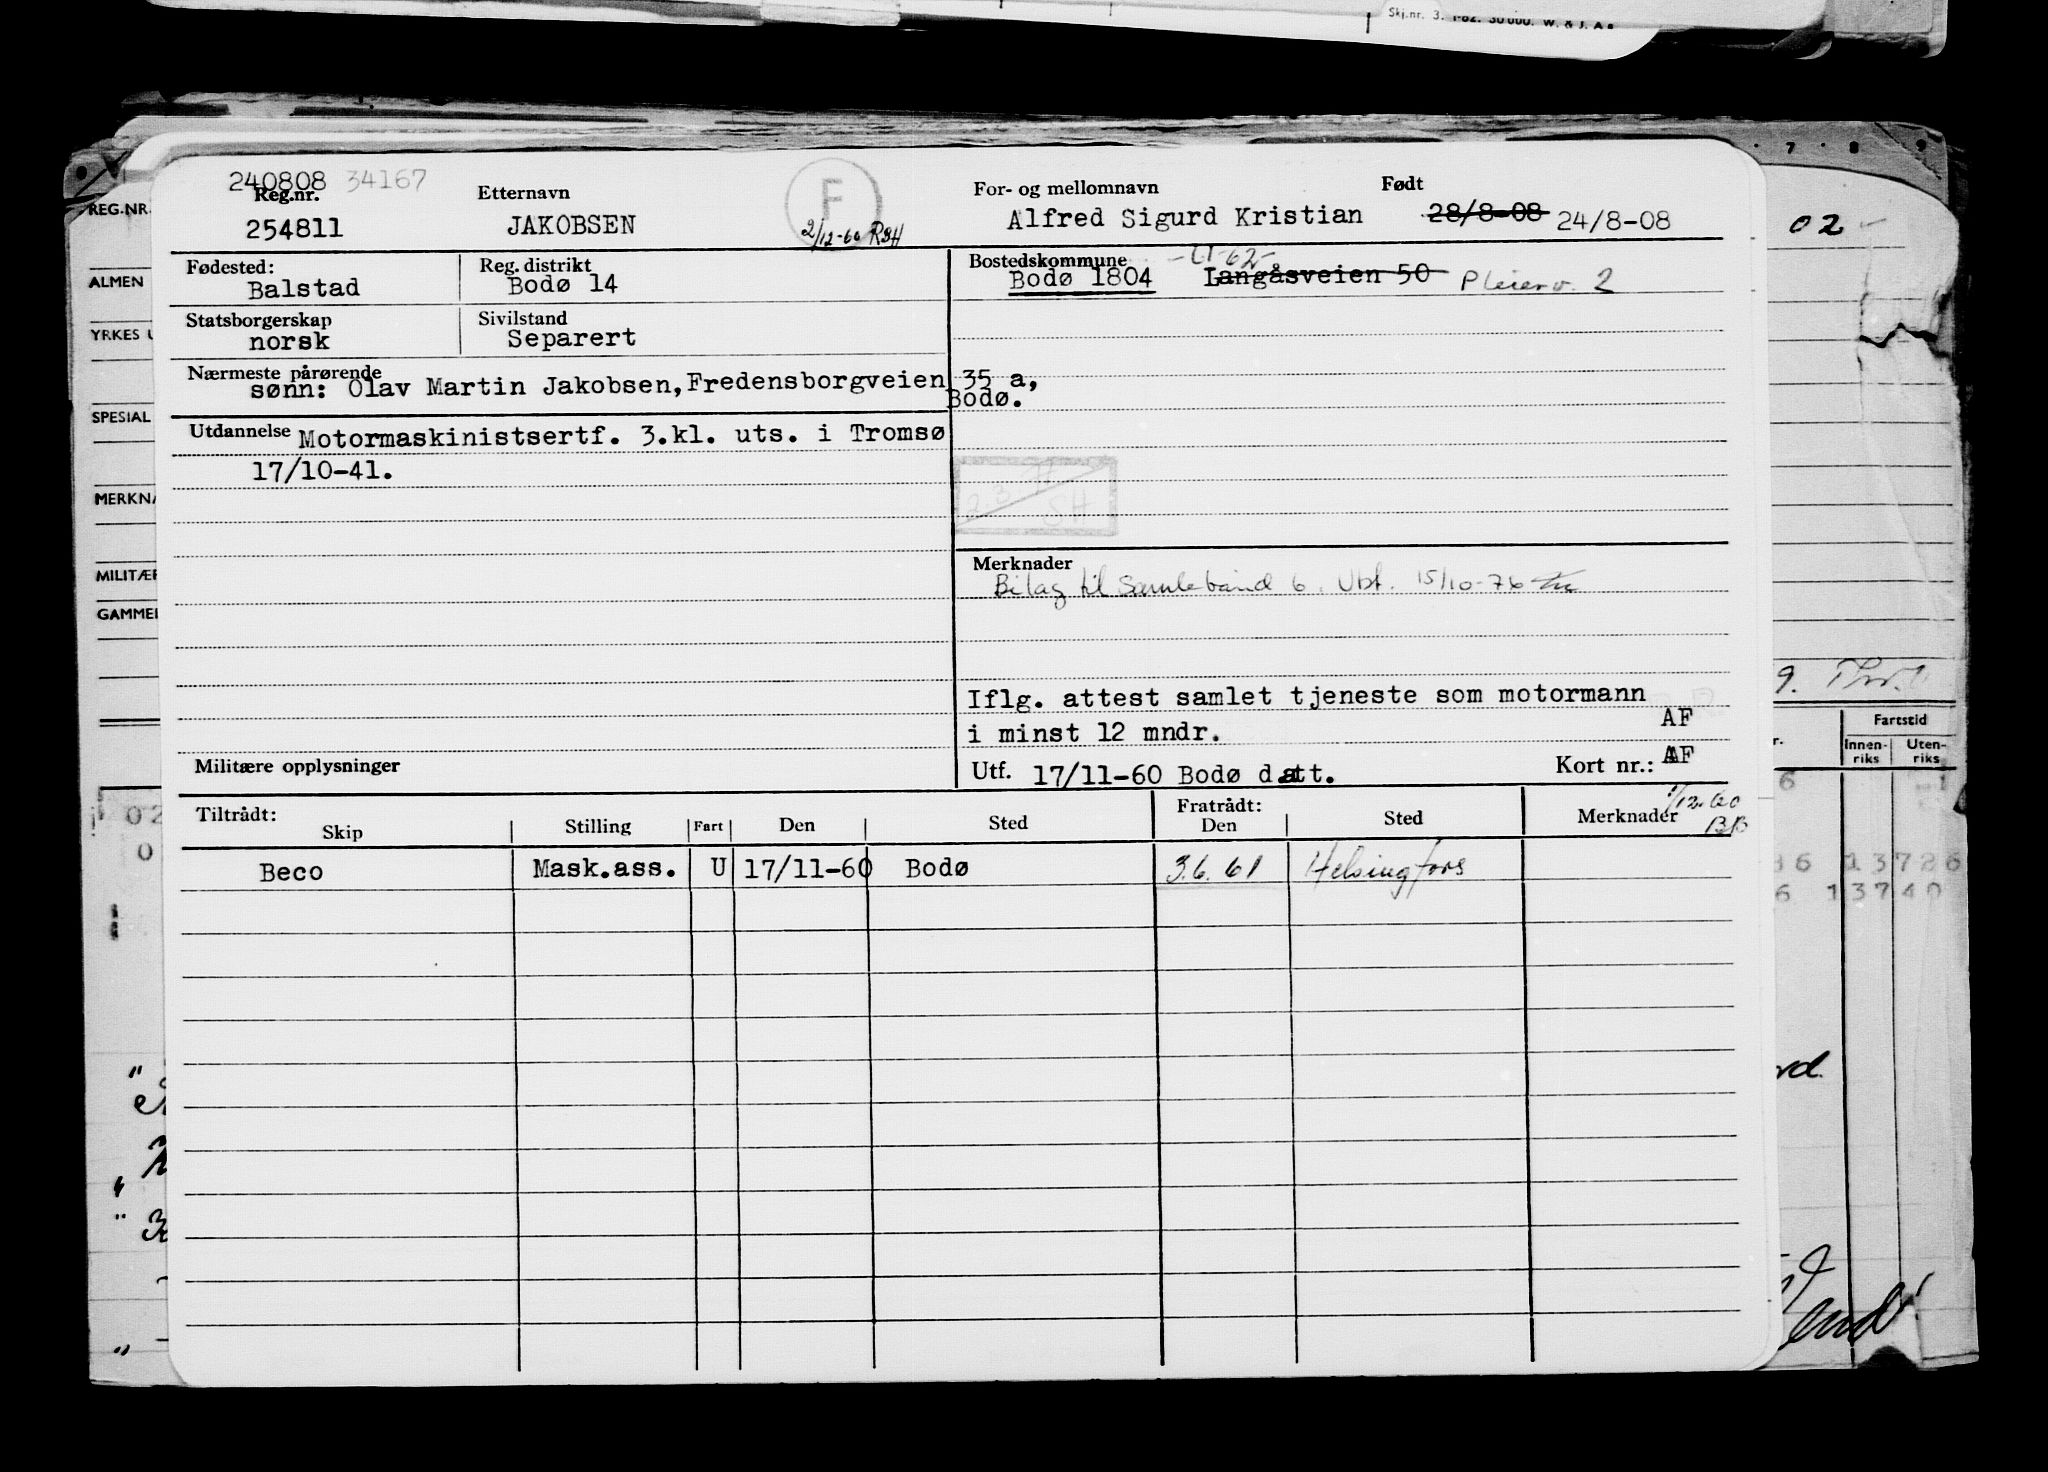 Skj.nr. 3. 1-62. 50 000. W. & J. A
7 8 9
240808 34167
Reg.nr. Etternavn F For- og mellomnavn Født
254811 JAKOBSEN 2/12-60 RSH Alfred Sigurd Kristian 28/8-08 24/8-08
Fødested: Reg. distrikt Bostedskommune
Balstad Bodø 14 Bodø 1804 Langåsveien 50 Pleierv. 2
Statsborgerskap Sivilstand
norsk Separert
Nærmeste pårørende
sønn: Olav Martin Jakobsen, Fredensborgveien 35 a,
Bodø.
Utdannelse Motormaskinistsertf. 3.kl. uts. i Tromsø
17/10-41.
Merknader
Bilag til Samleband 6. Ubf. 15/10-76
Iflg. attest samlet tjeneste som motormann
i minst 12 mndr. AF
Militære opplysninger Utf. 17/11-60 Bodø datt. Kort nr.: AF
Tiltrådt: Fratrådt: 1/12-60
Skip Stilling Fart Den Sted Den Sted Merknader BB
Beco Mask.ass. U 17/11-60 Bodø 3.6.61 Helsingfors
REG.NR.
ALMEN
YRKES U
SPESIAL
MERKNA
MILITÆR
GAMMEL
02
9.
Fartstid
Innen-
riks
Uten-
riks
6 1
36 13726
6 13740
02
0